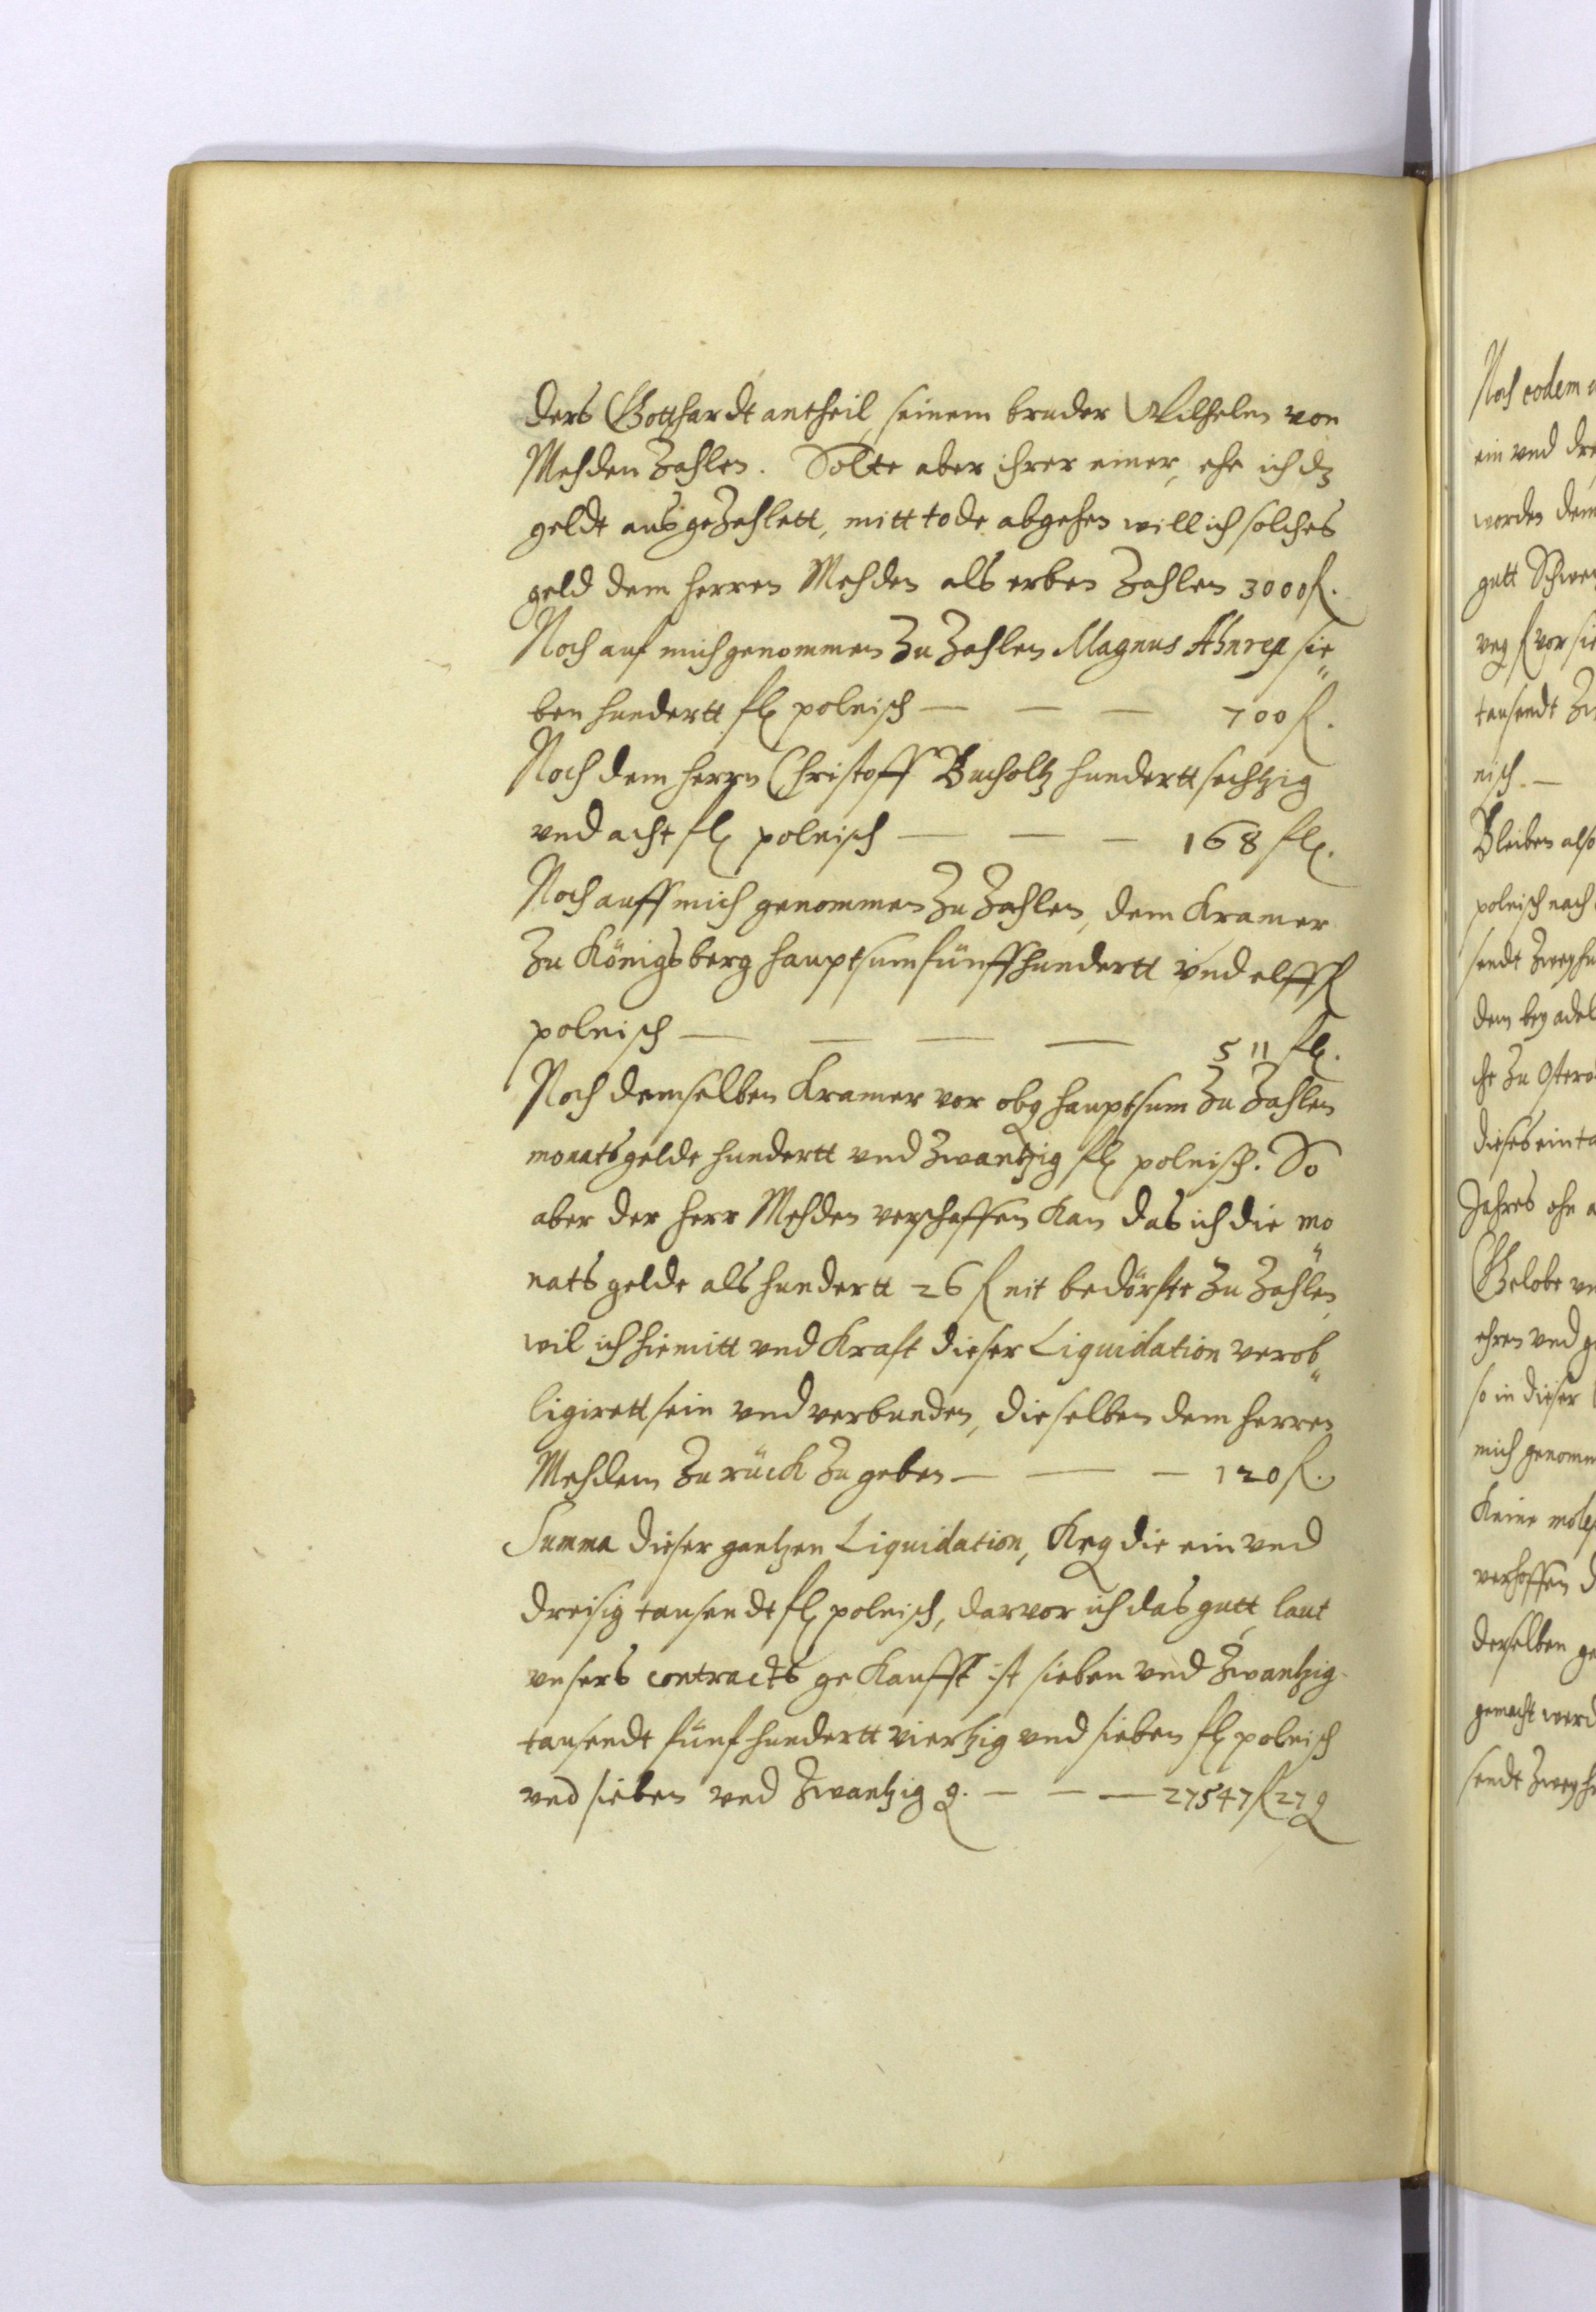 ders Gotthardt antheil, seinem bruder Wilhelm von
Mehden Zahlen. Solte aber ihrer einer, ehe ich dz
geldt ausgezehlett, mitt tode abgehen will ich solches
geld dem herren Mehden als erben Zahlen 3000 fl.
Noch auf mich genommen Zu Zahlen Magnus Ahnrep sie„
ben hundertt fl polnisch — — — 700 fl.
Noch dem herrn Christoff Bucholtz hundertt sechtzig
vnd acht fl polnisch — — — 168 fl.
Noch auff mich genommen Zu Zahlen, dem Kramer
Zu Königsberg hauptsum fünffhundertt vnd elff fl
polnisch — — — — 511 fl.
Noch demselben Kramer vor obg hauptsum Zu Zahlen
monatsgelde hundertt vnd Zwantzig fl polnisch. So
aber der herr Mehden verschaffen Kan das ich die mo„
natsgelde als hundertt 26 fl nit bedörfte Zu Zahlen,
wil ich hiemitt vnd Kraft dieser Liquidation verob„
ligirett sein vnd verbunden, dieselben dem herren
Mehdem Zurück Zu geben — — — 120 fl.
Summa dieser gantzen Liquidation, Keg die ein vnd
dreisig tausendt fl polnisch, darvor ich das gutt, laut
vnsers contracts geKaufft ist sieben vnd Zwantzig
tausendt fünfhundertt viertzig vnd sieben fl polnisch
vnd sieben vnd Zwantzig g. — — — 27547 fl 27 g
Noch eodem
ein vnd
worden
gutt
veg fl vor
tausendt
nisch —
Bleiben also
polnisch nach
sendt
dem bey adel
che Zu Ostero
dieses ein
Jahres ohn
Gelobe
ehren vnd
so in dieser
mich genomm
Keine
verhoffen
derselben
gemacht
sendt